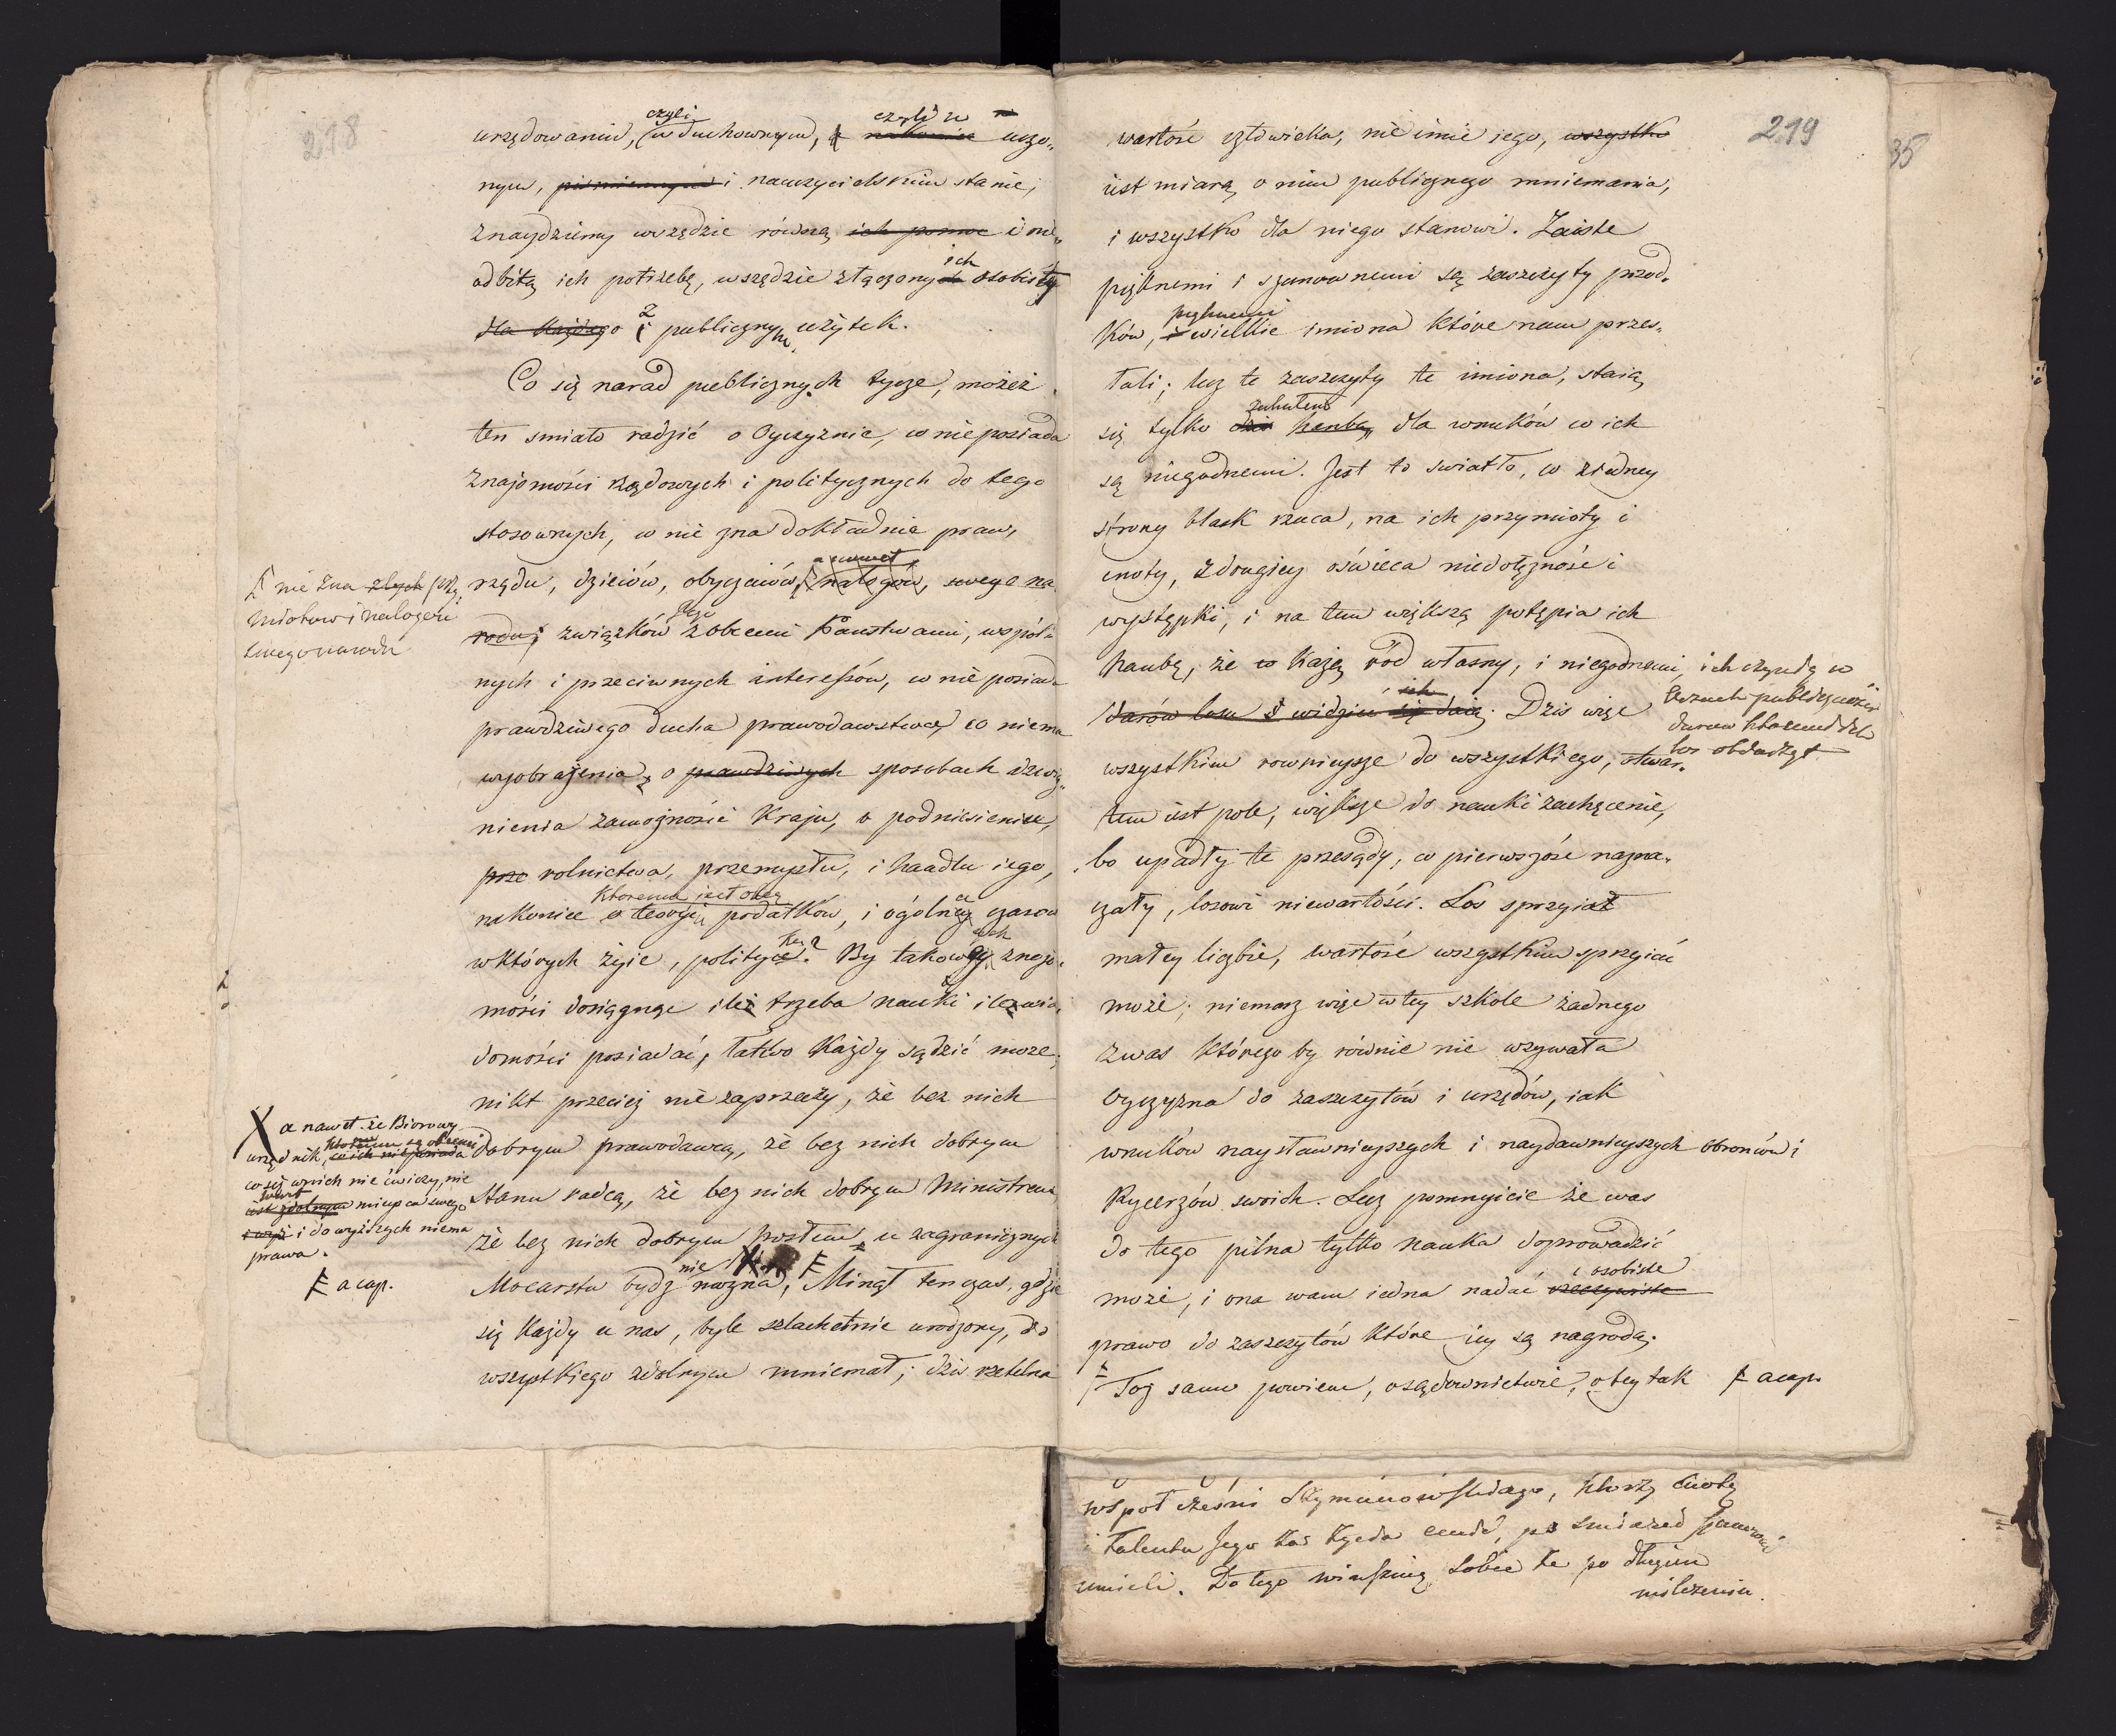 218
urzędowaniu, czyli w duchownym, czyli w uczo„
nym, piśmiennym i nauczycielskim stanie,
znaydziemy wszędzie równą ich pomoc i nie„
odbitą ich potrzebę, wszędzie złączony ich osobisty
dla każdego z publicznym użytek.
Co się narad publicznych tycze, możeż
ten smiało radzić o Oyczyznie, co nie posiada
znajomości rządowych i politycznych do tego
stosownych, co nie zna dokładnie praw,
rządu, dzieiów, obyczaiów, a nawet nałogów, swego na„
rodu, związków Jego z obcemi Państwami, wspól„
nych i przeciwnych interessów, co nie posiada
prawdziwego ducha prawodawstwa, co niema
wyobrażenia, o prawdziwych sposobach dzwig„
nienia zamożności Kraju, o podniesieniu,
prze rolnictwa, przemysłu, i handlu iego,
nakoniec któremu iest obcą teorya podatków, i ogólna czasów
w których żyie, polityka? By takowych znajo„
mości dosiągnąć ileż trzeba nauki ile wia„
domości posiadać, łatwo każdy sądzić może;
nikt przecież nie zaprzeczy, że bez nich
dobrym prawodawcą, że bez nich dobrym
Stanu radcą, że bez nich dobrym Ministrem,
że bez nich dobrym posłem u zagranicznych
Mocarstw bydz nie można, Minął ten czas, gdzie
się każdy u nas, byle szlachetnie urodzony, do
wszystkiego zdolnym mniemał; dziś rzetelna
nie zna złych przy
miotow i nałogów
swego narodu
X a nawet że Biorowy
urzędnik, któremu są obcemi co ich nie posiada
co się w nich nie ćwiczy, nie
iest zdolnym mieysca swego
i do wyższych niema
prawa.
a cap.
219
35
wartość człowieka, nie imie jego, wszystko
iest miarą o nim publicznego mniemania,
i wszystko dla niego stanowi. Zaiste
pięknemi i szanownemi są zaszczyty przod„
ków, pięknemi i wielkie imiona które nam przes„
łali; lecz te zaszczyty te imiona, staią
się tylko hanbą dla wnuków co ich
są niegodnemi. Jest to swiatło, co z iedney
strony blask rzuca, na ich przymioty i
cnoty, z drugiey oświeca niedołężność i
występki, i na tem większą potępia ich
haubę, że co każą ród własny, i niegodnemi, ich czynią w
oczach publiczności
darow któremi ich
los obdarzył
darów losu i widzieć się daią. Dzis więc
wszystkim rownieysze do wszystkiego, otwar„
tem iest pole, większe do nauki zachęcenie,
bo upadły te przesądy, co pierwszość nazna„
czały, losowi niewartości. Los sprzyiał
małey liczbie, wartość wszystkim sprzyiać
może; niemasz więc w tey szkole żadnego
z was którego by równie nie wzywała
Oyczyzna do zaszczytów i urzędów, iak
wnuków naysławnieyszych i naydawnieyszych obronców i
Rycerzów swoich. Lecz pomnyicie że was
do tego pilna tylko nauka doprowadzić
może, i ona wam iedna nadać i osobiste rzeczywiste
prawo do zaszczytów które iey są nagrodą.
Toż samo powiem, o sądownictwie, o tey tak a cap.
współcześni Szymanowskiego, ktorzy cnotę
i talenta Jego umieli. Do tego winszuią sobie że po długim
milczeniu.